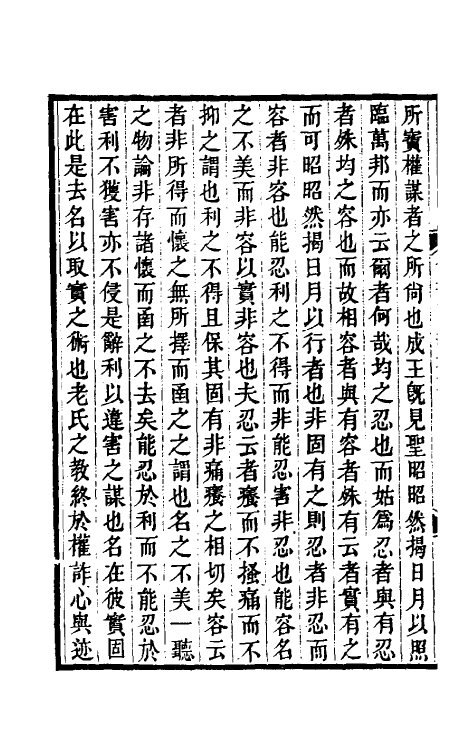 所實權謀者之所尙也成王旣見聖昭昭然揭日月以照
臨萬邦而亦云爾者何哉均之忍也而姑爲忍者與有忍
者殊均之容也而故相容者與有容者殊有云者實有之
而可昭昭然揭日月以行者也非固有之則忍者非忍而
容者非容也能忍利之不得而非能忍害非忍也能容名
之不美而非容以實非容也夫忍云者癢而不搔痛而不
抑之謂也利之不得且保其固有非痛癢之相切矣容云
者非所得而懷之無所擇而函之之謂也名之不美一聽
之物論非存諸懷而函之不去矣能忍於利而不能忍於
害利不獲害亦不侵是辭利以違害之謀也名在彼實固
在此是去名以取實之術也老氏之教終於權詐心與迹